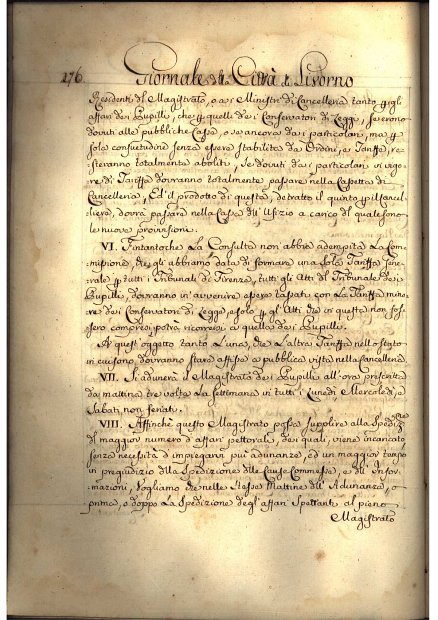 176 Giornale di Città di Livorno
Residenti del Magistrato, o a i Ministri di Cancelleria tanto p gli
affari dei Pupilli, che p quelli dei Conservatori di Legge, si erono
dovuti alle pubbliche Casse, o se ancora da i particolari, ma p
sola consuetudine senza essere stabilita da Ordini, e Tariffa, re
steranno totalmente aboliti, se dovuti da i particolari in vigo
re di Tariffa dovranno totalmente passare nella Cassetta di
Cancelleria, Ed il prodotto di questa, detratto il quinto p il Cancel
liere, dovrà passare nella Cassa dell' Ufizio a carico del quale sono
le nuove provvisioni.
VI. Fintantoche La Consulta non abbia adempita La Com
missione, che gli abbiamo data di formare una sola Tariffa Gene
rale p tutti i Tribunali di Firenze, tutti gli Atti del Tribunale dei
Pupilli, dovranno in avvenire essere tassati con La Tariffa mino
re dei Conservatori di Legge, e solo p gl' Atti, che in questa non fos
sero compresi potrà ricorresi a quella dei Pupilli.
A quest' oggetto tanto L'una, che L'altra Tariffa nello stato
in cui sono, dovranno stare affisse a pubblica vista nella Cancelleria
VII. Si adunerà il Magistrato dei Pupilli all' ora prescritta
da mattina tre volte La settimana in tutti i Lunedì Mercoledì, e
Sabati non feriati.
VIII. Affinchè questo Magistrato possa supplire alla Spediz.ne
del maggior numero d'affari pettorali, dei quali, viene incaricato
senza necessità d'impegnarsi più adunanze, ed un maggior tempo
in pregiudizio della Spedizione delle Cause Commesse, e dell' Infor
mazioni, Vogliamo che nelle stesse Mattine dell' Adunanza, o
prima, o doppo La Spedizione degl' affari Spettanti al pieno
Magistrato